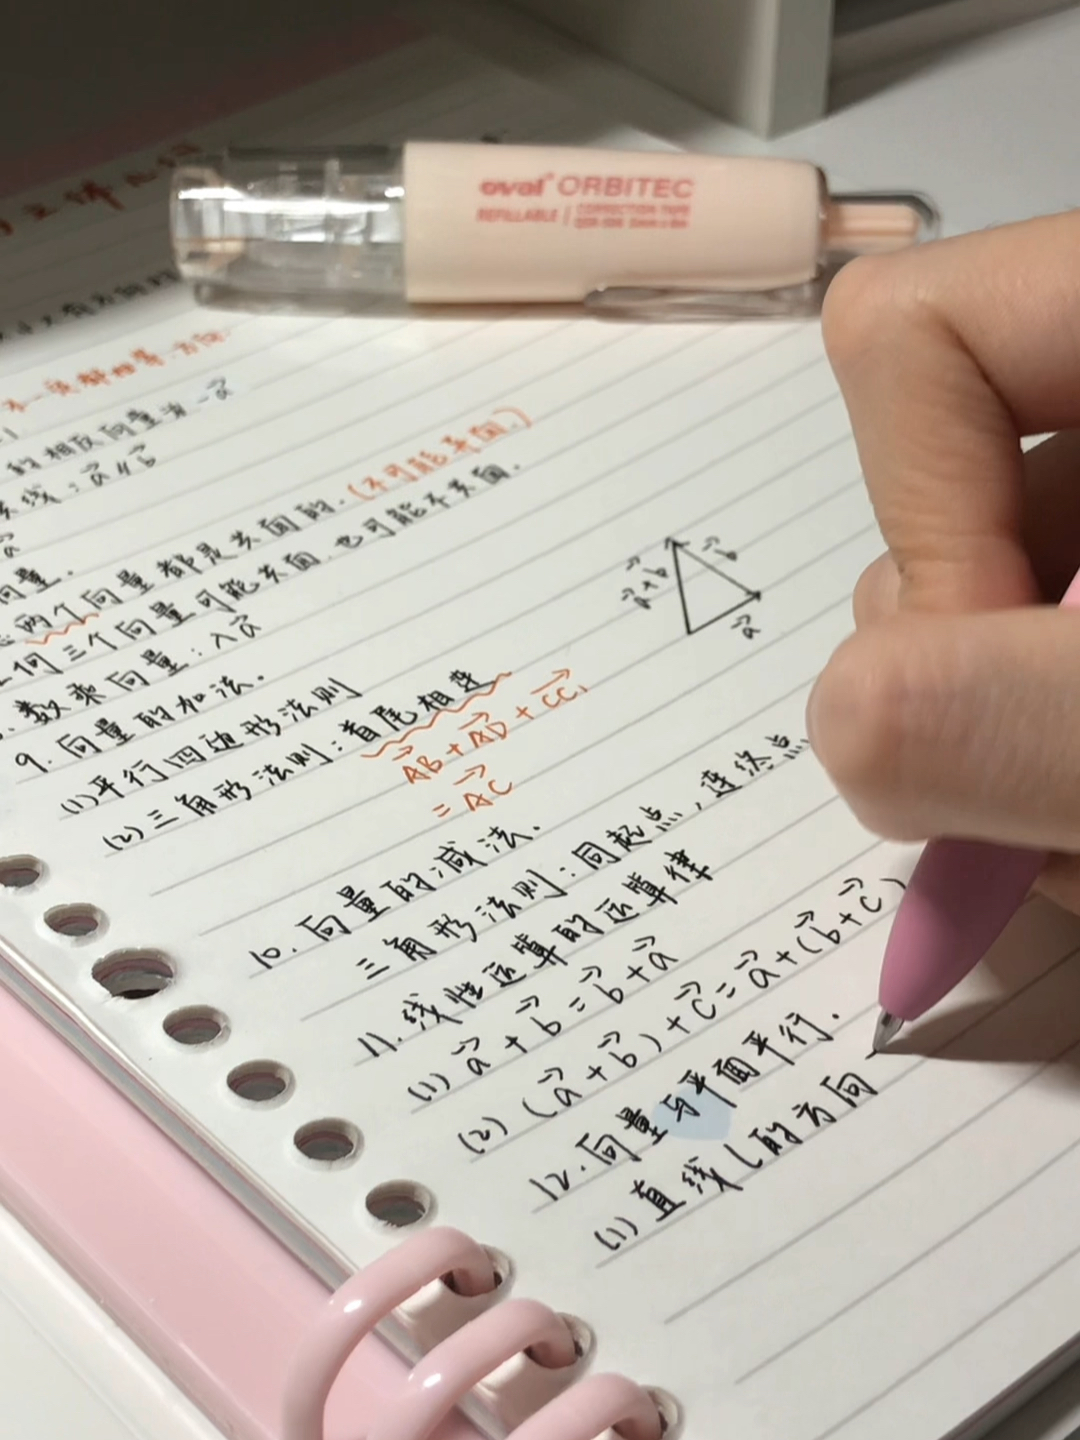 oval ORBITEC
REFILLABLE | CORRECTION TAPE
的相反向量为-a⃗
共线：a⃗∥b⃗
a⃗
向量.
两个向量都是共面的.（不可能异面.）
任何三个向量可能共面.也可能不共面.
数乘向量：λa⃗
9. 向量的加法.
(1)平行四边形法则
(2)三角形法则：首尾相连
AB⃗+AD⃗+CC⃗₁
=AC⃗
a⃗+b⃗
b⃗
a⃗
10. 向量的减法.
三角形法则：同起点，连终点
11. 线性运算的运算律
(1) a⃗+b⃗=b⃗+a⃗
(2) (a⃗+b⃗)+c⃗=a⃗+(b⃗+c⃗)
12. 向量与平面平行.
(1)直线l的方向